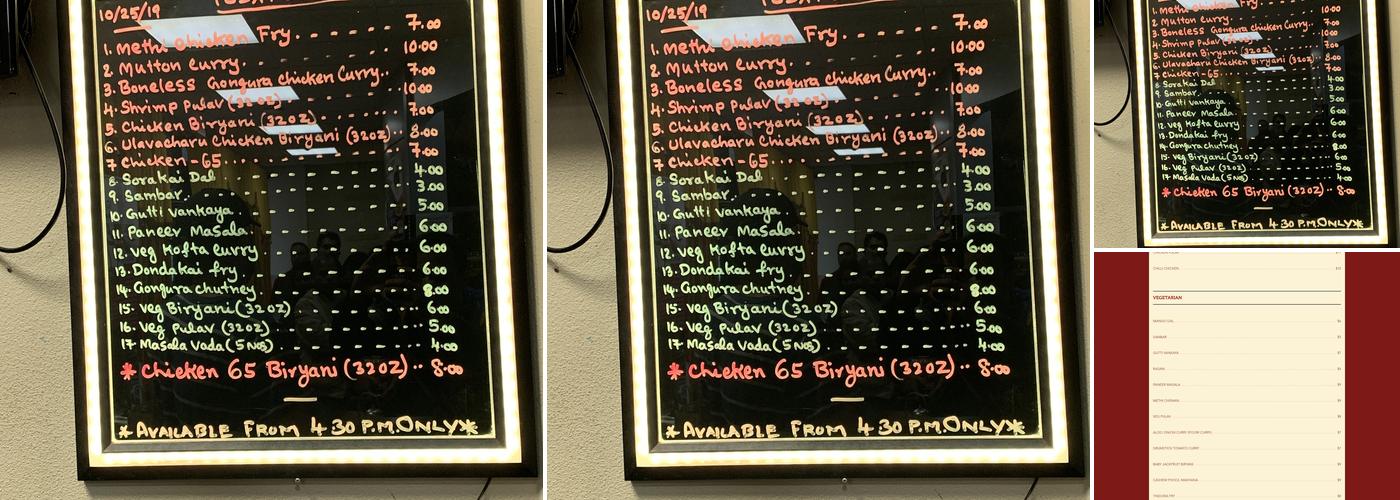 10/25/19
1. Methi Chicken Fry 7.00
2. Mutton Curry 10.00
3. Boneless Gongura Chicken Curry 7.00
4. Shrimp Pulav (32oz) 10.00
5. Chicken Biryani (32oz) 7.00
6. Ulavacharu Chicken Biryani (32oz) 8.00
7 Chicken-65 7.00
8. Sorakai Dal 4.00
9. Sambar 3.00
10. Gutti Vankaya 5.00
11. Paneer Masala 6.00
12. Veg Kofta Curry 6.00
13. Dondakai fry 6.00
14. Gongura chutney 8.00
15. Veg Biryani (32oz) 6.00
16. Veg Pulav (32oz) 5.00
17 Masala Vada (5 Nos) 4.00
* Chicken 65 Biryani (32oz) 8.00
*AVAILABLE FROM 4 30 P.M. ONLY*
10/25/19
1. Methi Chicken Fry 7.00
2. Mutton Curry 10.00
3. Boneless Gongura Chicken Curry 7.00
4. Shrimp Pulav (32oz) 10.00
5. Chicken Biryani (32oz) 7.00
6. Ulavacharu Chicken Biryani (32oz) 8.00
7 Chicken-65 7.00
8. Sorakai Dal 4.00
9. Sambar 3.00
10. Gutti Vankaya 5.00
11. Paneer Masala 6.00
12. Veg Kofta Curry 6.00
13. Dondakai fry 6.00
14. Gongura chutney 8.00
15. Veg Biryani (32oz) 6.00
16. Veg Pulav (32oz) 5.00
17 Masala Vada (5 Nos) 4.00
* Chicken 65 Biryani (32oz) 8.00
*AVAILABLE FROM 4 30 P.M. ONLY*
1. Methi Chicken Fry
2. Mutton Curry 10.00
3. Boneless Gongura Chicken Curry 7.00
4. Shrimp Pulav (32oz) 10.00
5. Chicken Biryani (32oz) 7.00
6. Ulavacharu Chicken Biryani (32oz) 8.00
7 Chicken-65 7.00
8. Sorakai Dal 4.00
9. Sambar 3.00
10. Gutti Vankaya 5.00
11. Paneer Masala 6.00
12. Veg Kofta Curry 6.00
13. Dondakai fry 6.00
14. Gongura chutney 8.00
15. Veg Biryani (32oz) 6.00
16. Veg Pulav (32oz) 5.00
17 Masala Vada (5 Nos) 4.00
* Chicken 65 Biryani (32oz) 8.00
*AVAILABLE FROM 4 30 P.M. ONLY*
CHILLI CHICKEN
VEGETARIAN
MANGO DAL
SAMBAR
GUTTI VANKAYA
PANEER MASALA
METHI CHAMAN
VEG PULAV
DRUMSTICK TOMATO CURRY
BABY JACKFRUIT BIRYANI
TINDORA FRY